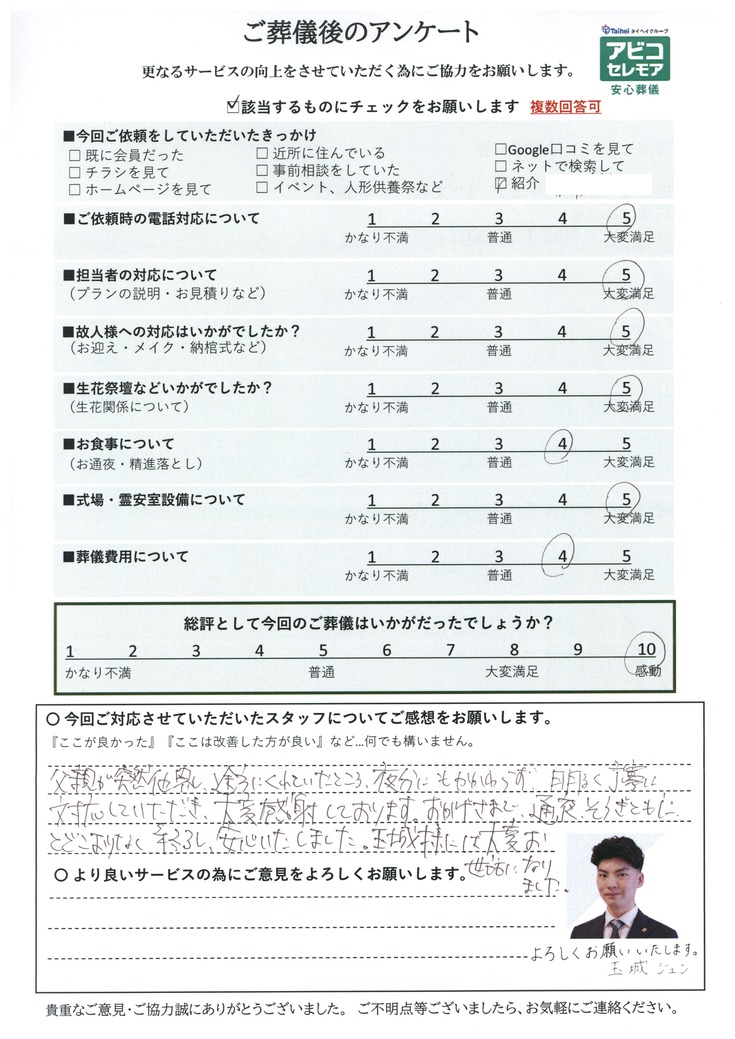 ご葬儀後のアンケート
Taihei タイヘイグループ
アビコ
セレモア
安心葬儀
更なるサービスの向上をさせていただく為にご協力をお願いします。
☑該当するものにチェックをお願いします 複数回答可
■今回ご依頼をしていただいたきっかけ
□ 既に会員だった □ 近所に住んでいる □Google口コミを見て
□ チラシを見て □ 事前相談をしていた □ ネットで検索して
□ ホームページを見て □ イベント、人形供養祭など ☑ 紹介
■ご依頼時の電話対応について 1 2 3 4 5
かなり不満 普通 大変満足
■担当者の対応について 1 2 3 4 5
（プランの説明・お見積りなど） かなり不満 普通 大変満足
■故人様への対応はいかがでしたか？ 1 2 3 4 5
（お迎え・メイク・納棺式など） かなり不満 普通 大変満足
■生花祭壇などいかがでしたか？ 1 2 3 4 5
（生花関係について） かなり不満 普通 大変満足
■お食事について 1 2 3 4 5
（お通夜・精進落とし） かなり不満 普通 大変満足
■式場・霊安室設備について 1 2 3 4 5
かなり不満 普通 大変満足
■葬儀費用について 1 2 3 4 5
かなり不満 普通 大変満足
総評として今回のご葬儀はいかがだったでしょうか？
1 2 3 4 5 6 7 8 9 10
かなり不満 普通 大変満足 感動
○ 今回ご対応させていただいたスタッフについてご感想をお願いします。
『ここが良かった』『ここは改善した方が良い』など…何でも構いません。
父親が突然他界し、途方にくれていたところ、夜分にもかかわらず、明るく丁寧に
対応していただき、大変感謝しております。おかげさまで、通夜、そうぎともに、
とどこおりなく終了し、安心いたしました。玉城様には大変お
世話になり
ました。
○ より良いサービスの為にご意見をよろしくお願いします。
よろしくお願いいたします。
玉城 ジュン
貴重なご意見・ご協力誠にありがとうございました。 ご不明点等ございましたら、お気軽にご連絡ください。